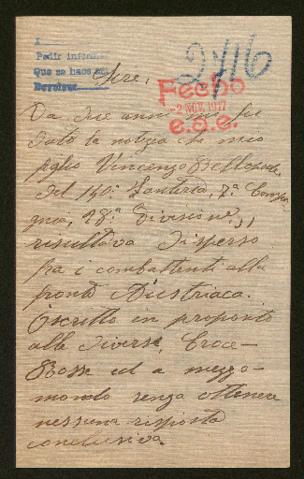 1
Pedir inform
Que se hace
Devolver
2416
Sire,
Fecho
2 NOV. 1917
e.a.e.
Da due anni mi fu
data la notizia che mio
figlio Vincenzo
del 140º Fanteria, 7ª Compa
gnia, 28ª Divisione,
risultava disperso
fra i combattenti alla
fronte Austriaca.
O scritto in proposito
alle diverse Croce-
Rosse ed a mezzo
mondo senza ottenere
nessuna risposta
conclusiva.